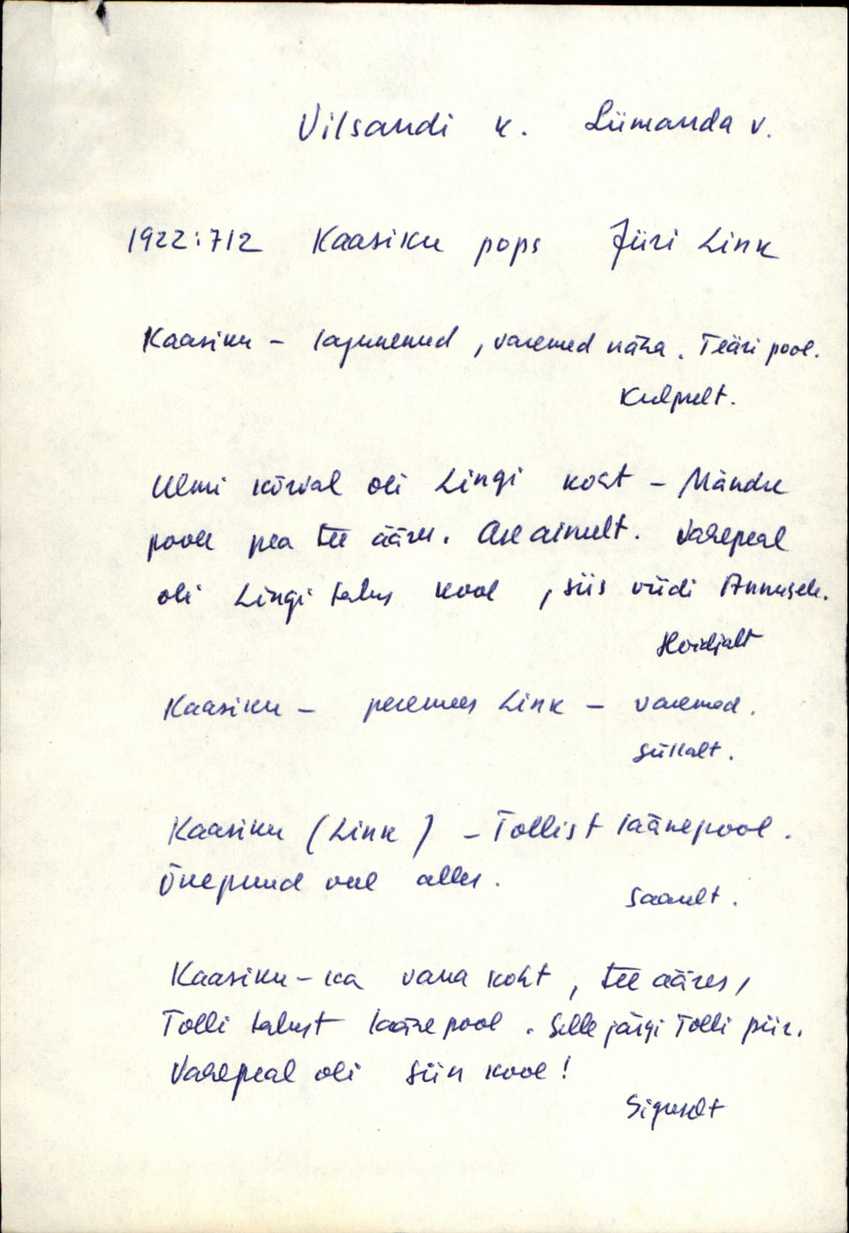 Vilsandi k. Lümanda v.
1922:712 Kaasiku pops Jüri Link
Kaasiku – lagunenud, varemed näha. Teäri pool.
Kulpult.
Ulmi kõrval oli Lingi koht – Mändre
poole pea tee ääres. Ase ainult. Vahepeal
oli Lingi talus kool, siis viidi Annusele.
Hoidjalt
Kaasiku – peremees Link – varemed.
Süllalt.
Kaasiku (Link) – Tollist läänepool.
Õunepuud veel alles.
Saarelt.
Kaasiku – ka vana koht, tee ääres,
Tolli talust läänepool. Selle järgi Tolli piir.
Vahepeal oli siin kool!